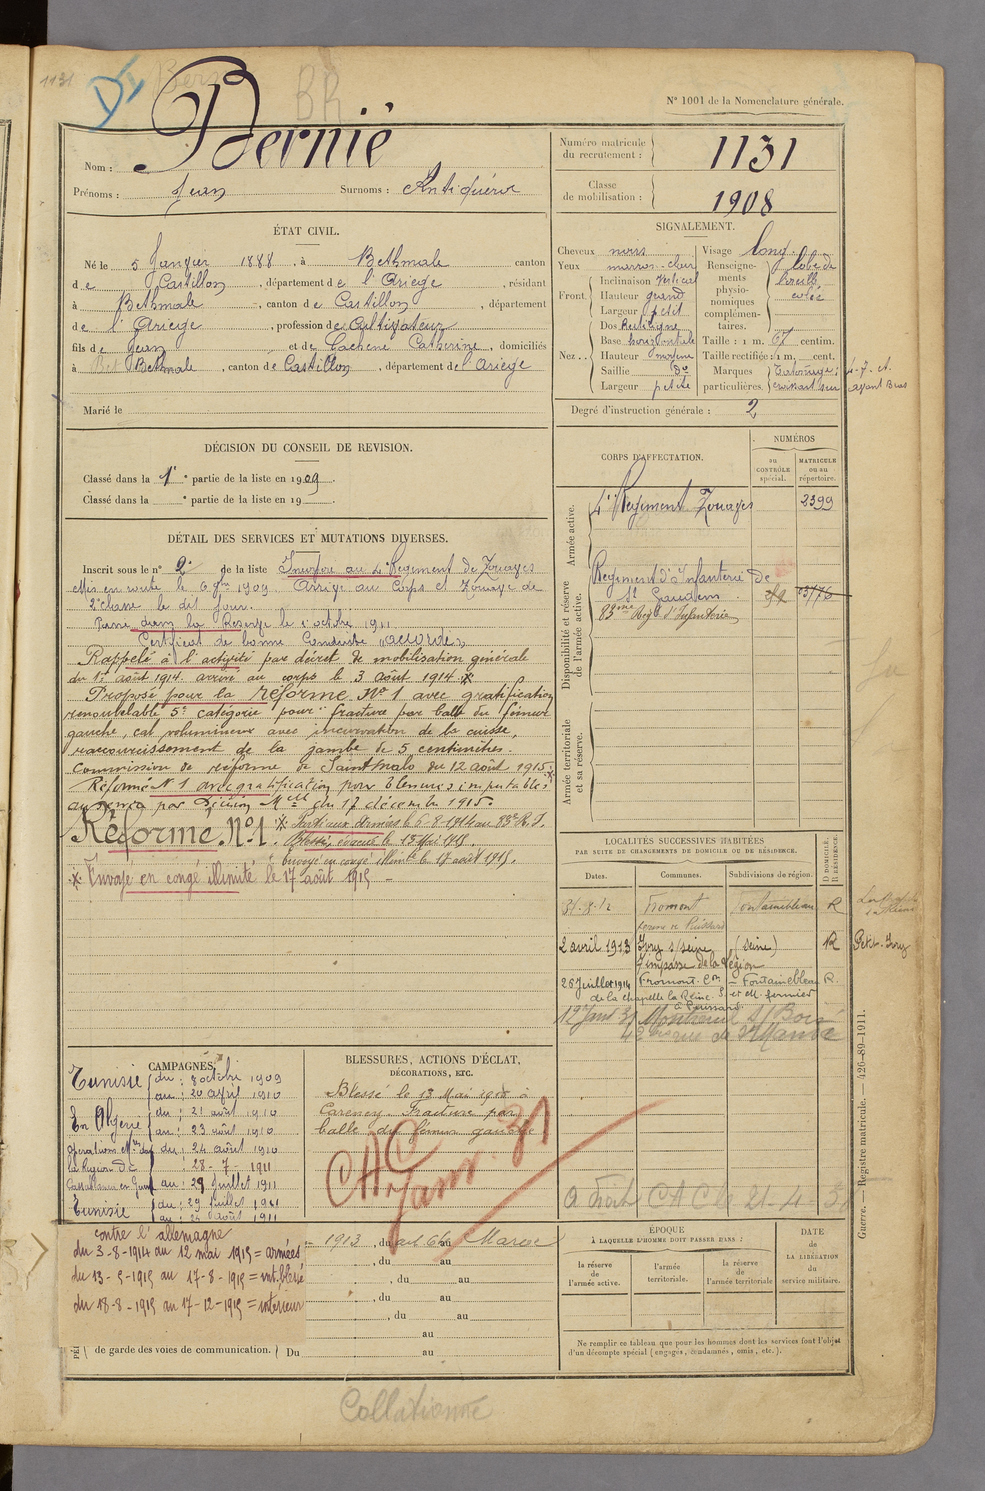 1131
BR
N° 1001 de la Nomenclature générale.
Nom : Bernié
Prénoms : Jean Surnoms :
Numéro matricule du recrutement : 1131
Classe de mobilisation : 1908
ÉTAT CIVIL.
Né le 5 Janvier 1888, à Bethmale canton
de Castillon, département de l'Ariège, résidant
à Bethmale, canton de Castillon, département
de l'Ariège, profession de Cultivateur
fils de Jean et de Cachene Catherine, domiciliés
à Bet Bethmale, canton de Castillon, département de l'Ariège
Marié le
SIGNALEMENT.
Cheveux noirs
Yeux marron-clair
Front. Inclinaison Vertical
Hauteur grand
Largeur petit
Nez.. Dos Rectiligne
Base horizontale
Hauteur moyen
Saillie do
Largeur petite
Visage long.
Renseignements physionomiques complémentaires. lobe de l'oreille collée
Taille : 1 m. 67 centim.
Taille rectifiée : 1 m. cent.
Marques particulières. Tatouage :
avant Bras
Degré d'instruction générale : 2
DÉCISION DU CONSEIL DE REVISION.
Classé dans la 1e partie de la liste en 1909.
Classé dans la e partie de la liste en 19 .
DÉTAIL DES SERVICES ET MUTATIONS DIVERSES.
Inscrit sous le n° 2 de la liste Incorporé au 4e Régiment de Zouaves
Mis en route le 6 8bre 1909. Arrivé au Corps et Zouave de
2e classe le dit jour.
Passé dans la Réserve le 1 octobre 1911
Certificat de bonne Conduite "accordé"
Rappelé à l'activité par décret de mobilisation générale
du 1er août 1914. arrivé au corps le 3 août 1914.
Proposé pour la Réforme N° 1 avec gratification
renouvelable 5e catégorie pour : fracture par balle du fémur
gauche, cal volumineux avec incurvation de la cuisse,
raccourcissement de la jambe de 5 centimètres.
Commission de réforme de Saint Malo du 12 août 1915.
Réformé N° 1 avec gratification pour blessures imputables
au service par décision Mlle du 17 décembre 1915.
Réforme N° 1.
Parti aux armées le 6-8-1914 au 83e R.I.
Blessé, évacué le 13 Mai 1915.
Envoyé en congé illimité le 17 août 1915.
Envoyé en congé illimité le 17 août 1915
CORPS D'AFFECTATION.
NUMÉROS
au CONTRÔLE spécial.
MATRICULE ou au répertoire.
Armée active.
4e Régiment Zouaves 2399
Disponibilité et réserve de l'armée active.
Régiment d'Infanterie de
St Gaudens.
83ème Régt d'Infanterie
Armée territoriale et sa réserve.
LOCALITÉS SUCCESSIVES HABITÉES
PAR SUITE DE CHANGEMENTS DE DOMICILE OU DE RÉSIDENCE.
Dates. Communes. Subdivisions de région. D DOMICILE. R RÉSIDENCE.
31-8-12 Fromont Fontainebleau R
2 avril 1913 Ivry s/seine (Seine) R Petit-Ivry
7 impasse de la Région
26 Juillet 1914 Fromont con - Fontainebleau R.
de la Chapelle la Reine. S. et M. fermier
12 Janv 31 Montreuil s/ Bois
42 bis rue de
A droit CAC le 21-4-3
CAMPAGNES.
Tunisie du : 8 octobre 1909
au : 20 avril 1910
En Algérie du : 21 août 1910
au : 23 août 1910
du : 24 août 1910
28-7-1911
au : 29 juillet 1911
Tunisie du : 29 juillet 1911
au : août 1911
contre l'allemagne
du 3-8-1914 au 12 mai 1915 = armées
du 13-5-1915 au 17-8-1915 = int. blessé
du 18-8-1915 au 17-12-1915 = intérieur
BLESSURES, ACTIONS D'ÉCLAT,
DÉCORATIONS, ETC.
Blessé le 13 Mai 1915 à
Carency. Fracture par
balle du fémur gauche
CAC
Janv. 31
1913, du au
, du au
, du au
, du au
, du au
au
de garde des voies de communication. Du au
ÉPOQUE
À LAQUELLE L'HOMME DOIT PASSER DANS :
la réserve de l'armée active.
l'armée territoriale.
la réserve de l'armée territoriale
DATE de LA LIBÉRATION du service militaire.
Ne remplir ce tableau que pour les hommes dont les services font l'objet
d'un décompte spécial (engagés, condamnés, omis, etc.).
Guerre. — Registre matricule. — 426-89-1911.
Collationné